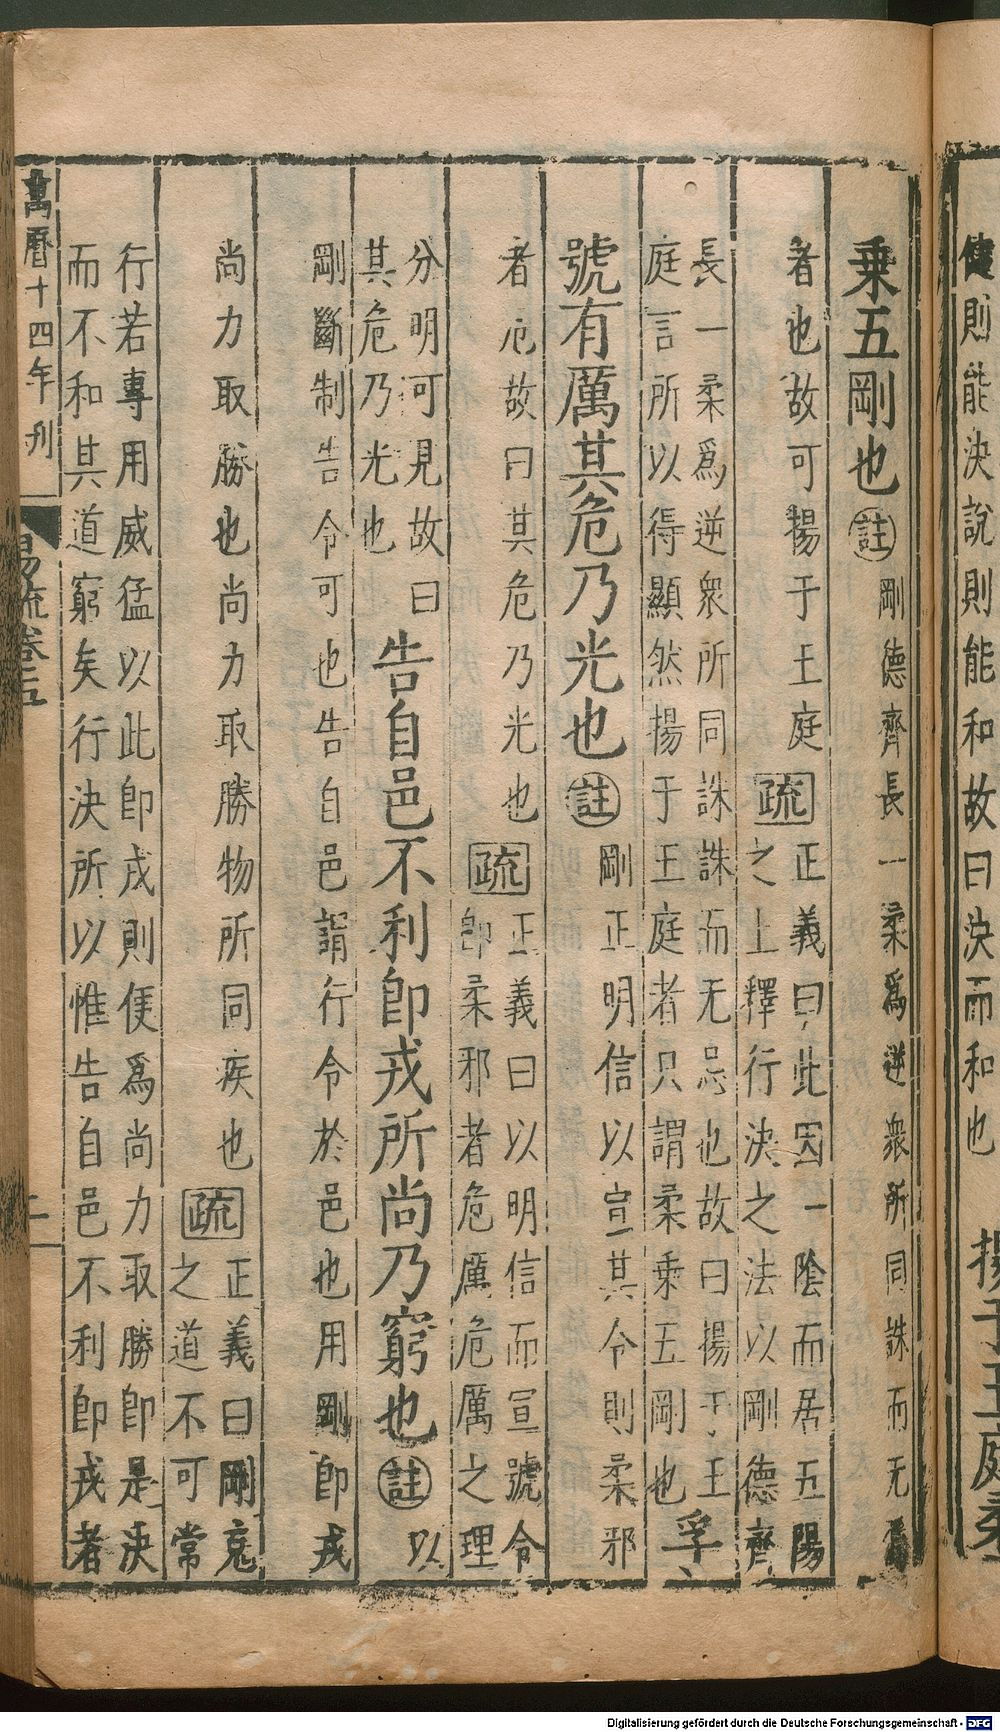 健則能決說則能和故曰決而和也 揚于王庭柔
乗五剛也註剛德齊長一柔爲逆衆所同誅而无
者也故可揚于王庭疏正義曰此因一陰而居五陽
之上釋行決之法以剛德齊
長一柔爲逆衆所同誅誅而无忌也故曰揚于王
庭言所以得顯然揚于王庭者只謂柔乗五剛也孚
號有厲其危乃光也註剛正明信以宣其令則柔邪
者危故曰其危乃光也疏正義曰以明信而宣號令
卽柔邪者危厲危厲之理
分明可見故曰
其危乃光也告自邑不利卽戎所尚乃窮也註以
剛斷制告令可也告自邑謂行令於邑也用剛卽戎
尚力取勝也尚力取勝物所同疾也疏正義曰剛克
之道不可常
行若專用威猛以此卽戎則便爲尚力取勝卽是決
而不和其道窮矣行決所以惟告自邑不利卽戎者
萬曆十四年刊
易疏卷五
二
Digitalisierung gefördert durch die Deutsche Forschungsgemeinschaft - DFG